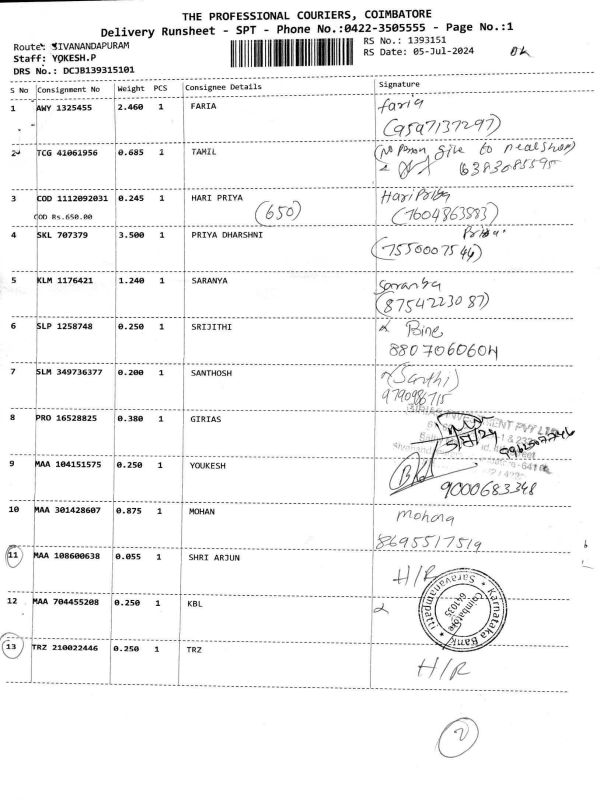 THE PROFESSIONAL COURIERS, COIMBATORE
Delivery Runsheet - SPT - Phone No.:0422-3505555 - Page No.:1
Route: SIVANANDAPURAM
RS No.: 1393151
Staff: YOKESH.P
RS Date: 05-Jul-2024
DRS No.: DCJB139315101
S No Consignment No Weight PCS Consignee Details Signature
1 AWY 1325455 2.460 1 FARIA faria
(9597137297)
2 TCG 41061956 0.685 1 TAMIL (no person give to near shop)
6383085595
3 COD 1112092031 0.245 1 HARI PRIYA Hari Priya
COD Rs.650.00 (650) (7604863583)
4 SKL 707379 3.500 1 PRIYA DHARSHNI Priya
(7550007546)
5 KLM 1176421 1.240 1 SARANYA Saranya
(8754223087)
6 SLP 1258748 0.250 1 SRIJITHI
8807060604
7 SLM 349736377 0.200 1 SANTHOSH (Santhi)
9790986715
8 PRO 16528825 0.380 1 GIRIAS
5/7/24
9 MAA 104151575 0.250 1 YOUKESH
9000683348
10 MAA 301428607 0.875 1 MOHAN Mohana
8695517519
11 MAA 108600638 0.055 1 SHRI ARJUN H/R
12 MAA 704455208 0.250 1 KBL
Karnataka Bank
Saravanampatti
Coimbatore
641035
13 TRZ 210022446 0.250 1 TRZ H/R
2